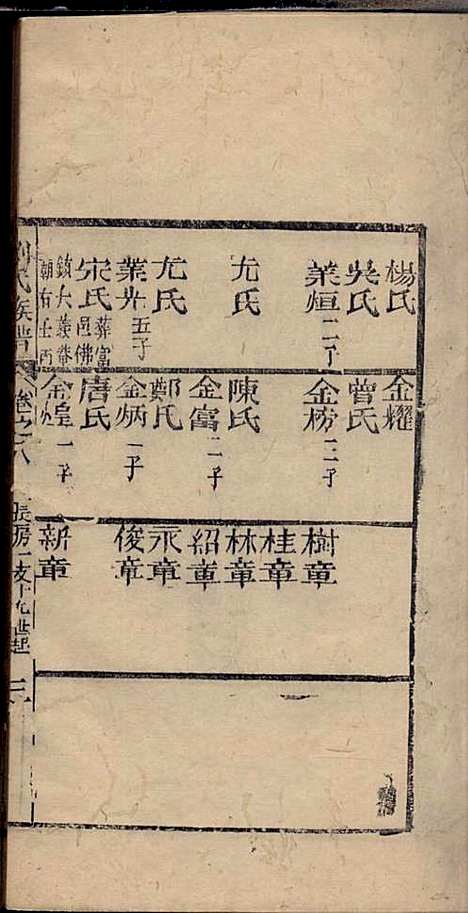 楊氏
吳氏
業烜 二子
尤氏
尤氏
業光 五子
宋氏 葬富邑佛
鎮大義
朝右壬丙
金耀
曾氏
金榜 三子
陳氏
金富 二子
鄭氏
金炳 一子
唐氏
金煌 一子
樹章
桂章
林章
紹章
永章
俊章
新章
氏族譜
卷之八
長房一支十九世起